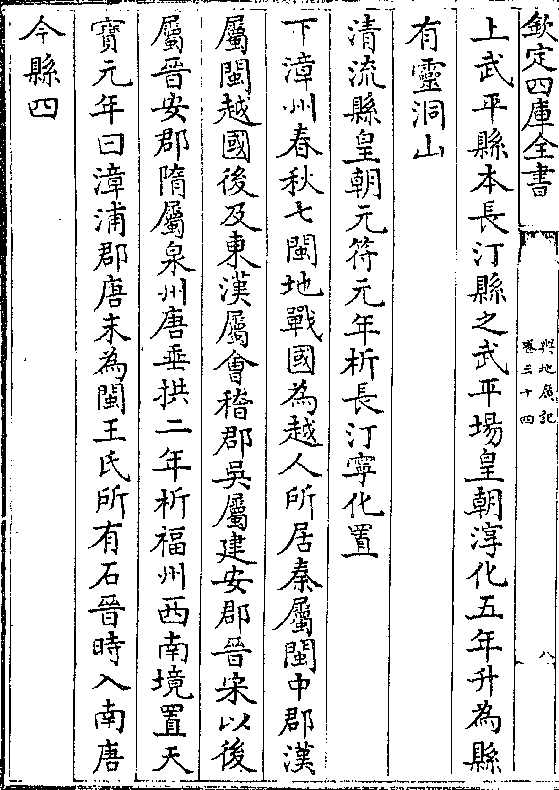 欽定四庫全書
輿地廣記
卷三十四
八
上武平縣本長汀縣之武平場皇朝淳化五年升為縣
有靈洞山
清流縣皇朝元符元年析長汀寧化置
下漳州春秋七閩地戰國為越人所居秦屬閩中郡漢
屬閩越國後及東漢屬會稽郡吳屬建安郡晉宋以後
屬晉安郡隋屬泉州唐垂拱二年析福州西南境置天
寳元年曰漳浦郡唐末為閩王氏所有石晉時入南唐
今縣四